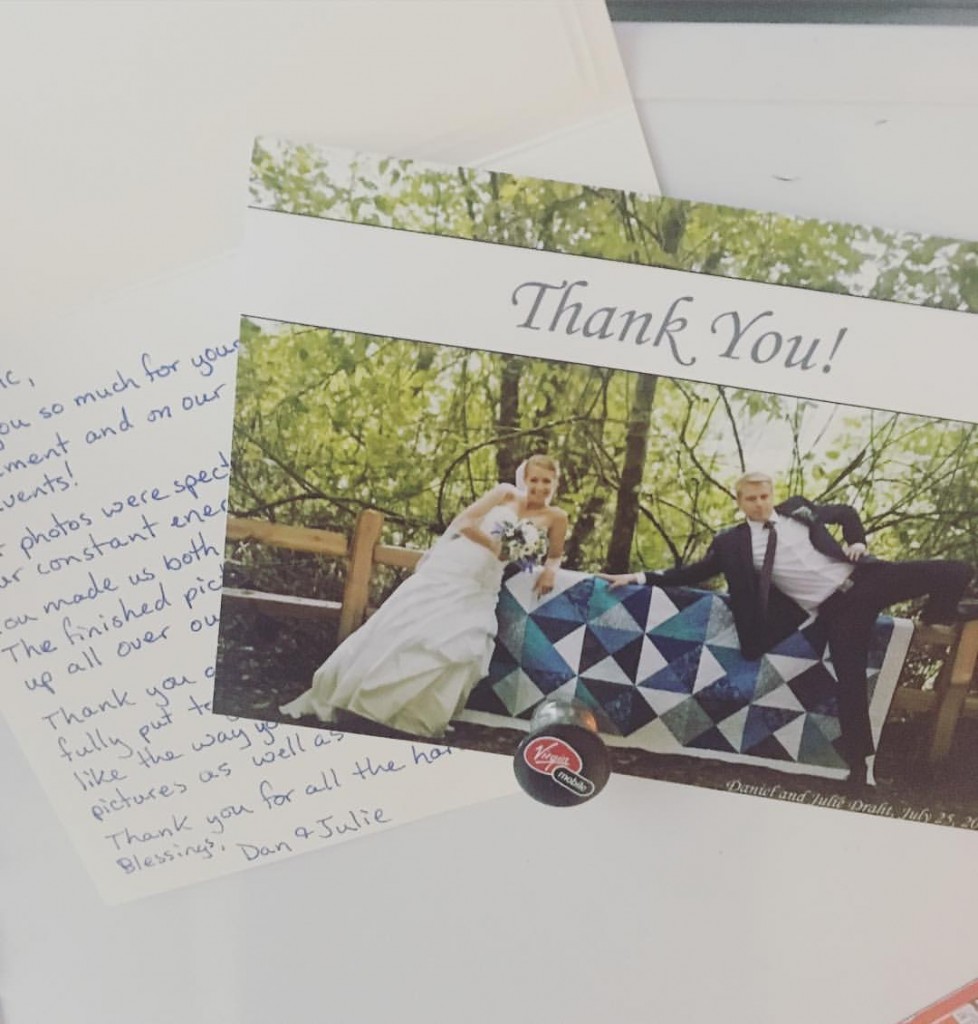 Thank You!
Daniel and Julie Draht, July 25, 20
Virgin
mobile
ic,
you so much for your
ement and on our
events!
r photos were spec
ur constant ener
ou made us both
The finished pic
up all over ou
Thank you a
fully put to
like the way yo
pictures as well as
Thank you for all the har
Blessings, Dan & Julie